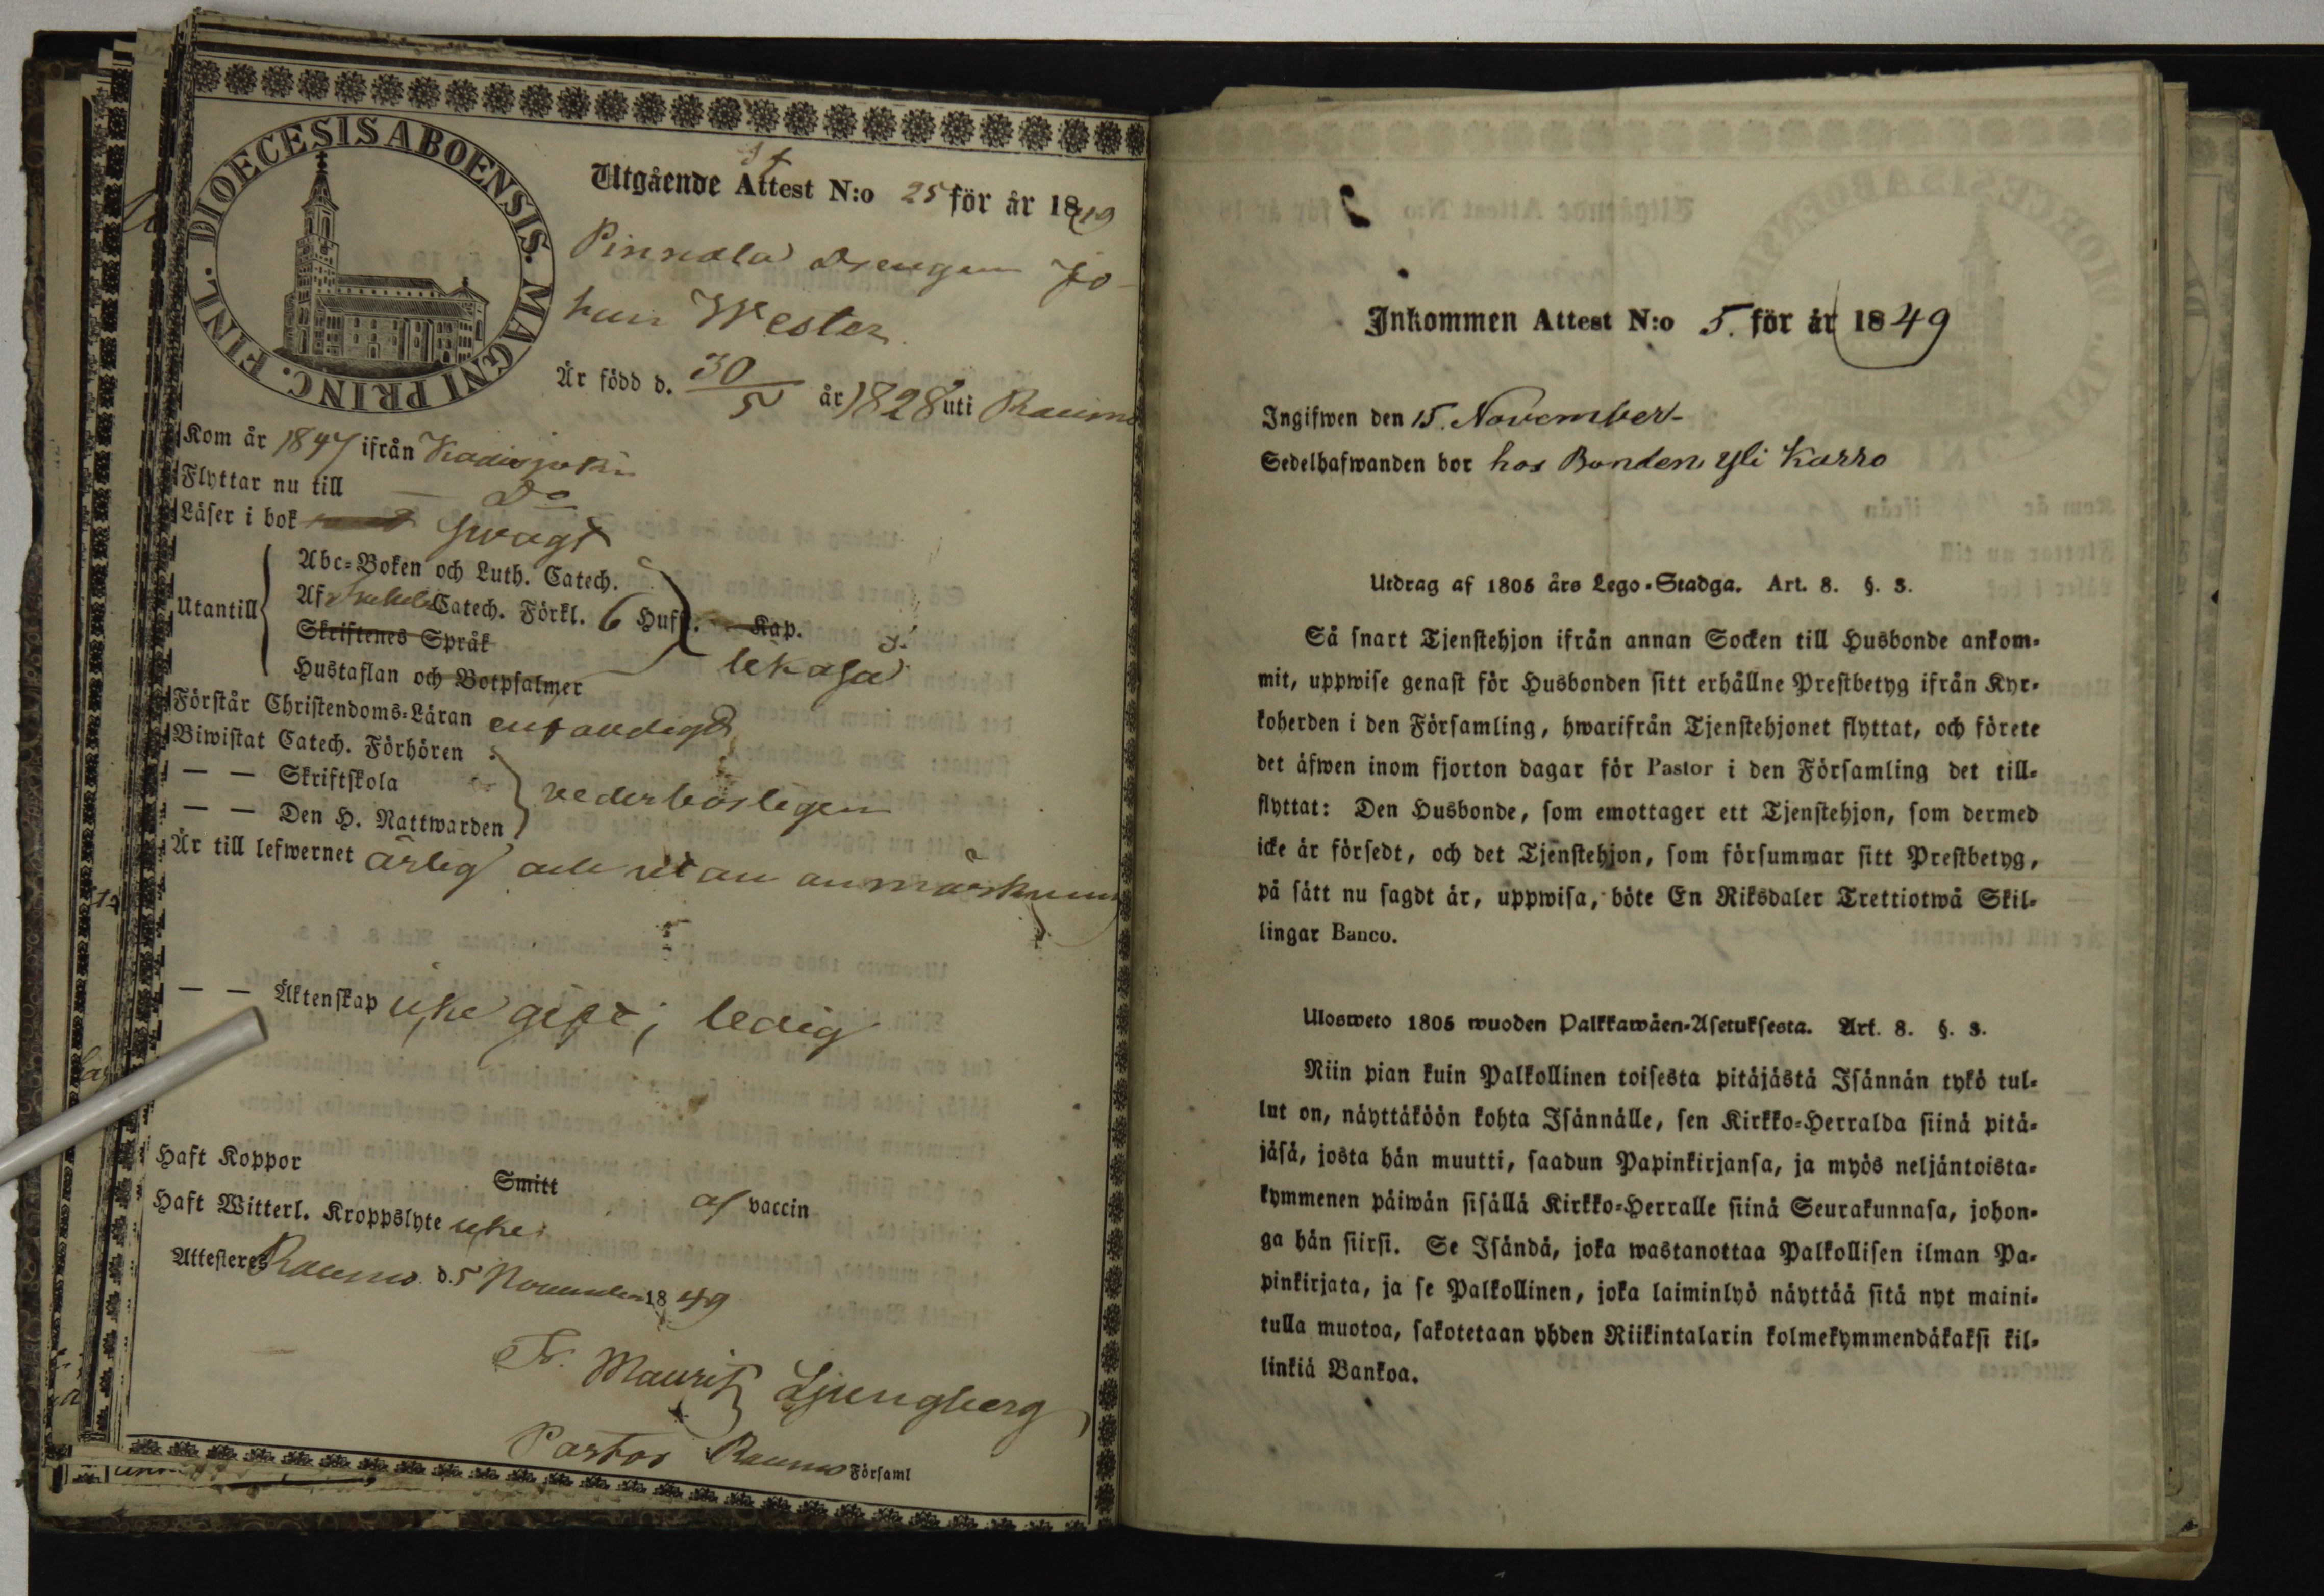 DIOECESIS ABOENSIS. MAGNI PRINC. FINL.
Utgående Attest N:o 25 för år 1849
Pinnala Drengen Jo-
han Wester
Är född d. 30/5 år 1828 uti Raumo
Kom år 1847 ifrån
Flyttar nu till — Do
Läser i bok swagt
Utantill
Abc-Boken och Luth. Catech.
Af Catech. Förkl. 6 Hufst. Kap.
Skriftenes Språk
Hustaflan och Botpsalmer
likaså
Förstår Christendoms-Läran enfaldigt
Biwistat Catech. Förhören
— — Skriftskola
— — Den H. Nattwarden
vederbörligen
Är till lefwernet ärlig och utan anmärkning
— — Äktenskap icke gift; ledig
Haft Koppor Smitt af vaccin
Haft Witterl. Kroppslyte icke
Attesteres Raumo d. 5 November 1849
Fr. Maurits Ljungberg
Pastor Raumo Församl
Inkommen Attest N:o 5. för år 1849
Ingifwen den 15. November
Sedelhafwanden bor hos Bonden Yli Karro
Utdrag af 1805 års Lego-Stadga. Art. 8. §. 3.
Så snart Tjenstehjon ifrån annan Socken till Husbonde ankom-
mit, uppwise genast för Husbonden sitt erhållne Prestbetyg ifrån Kyr-
koherden i den Församling, hwarifrån Tjenstehjonet flyttat, och förete
det äfwen inom fjorton dagar för Pastor i den Församling det till-
flyttat: Den Husbonde, som emottager ett Tjenstehjon, som dermed
icke är försedt, och det Tjenstehjon, som försummar sitt Prestbetyg,
på sätt nu sagdt är, uppwisa, böte En Riksdaler Trettiotwå Skil-
lingar Banco.
Ulosweto 1805 wuoden Palkkawäen-Asetuksesta. Art. 8. §. 3.
Niin pian kuin Palkollinen toisesta pitäjästä Isännän tykö tul-
lut on, näyttäköön kohta Isännälle, sen Kirkko-Herralda siinä pitä-
jäsä, josta hän muutti, saadun Papinkirjansa, ja myös neljäntoista-
kymmenen päiwän sisällä Kirkko-Herralle siinä Seurakunnasa, johon-
ga hän siirsi. Se Isändä, joka wastanottaa Palkollisen ilman Pa-
pinkirjata, ja se Palkollinen, joka laiminlyö näyttää sitä nyt maini-
tulla muotoa, sakotetaan yhden Riikintalarin kolmekymmendäkaksi kil-
linkiä Bankoa.